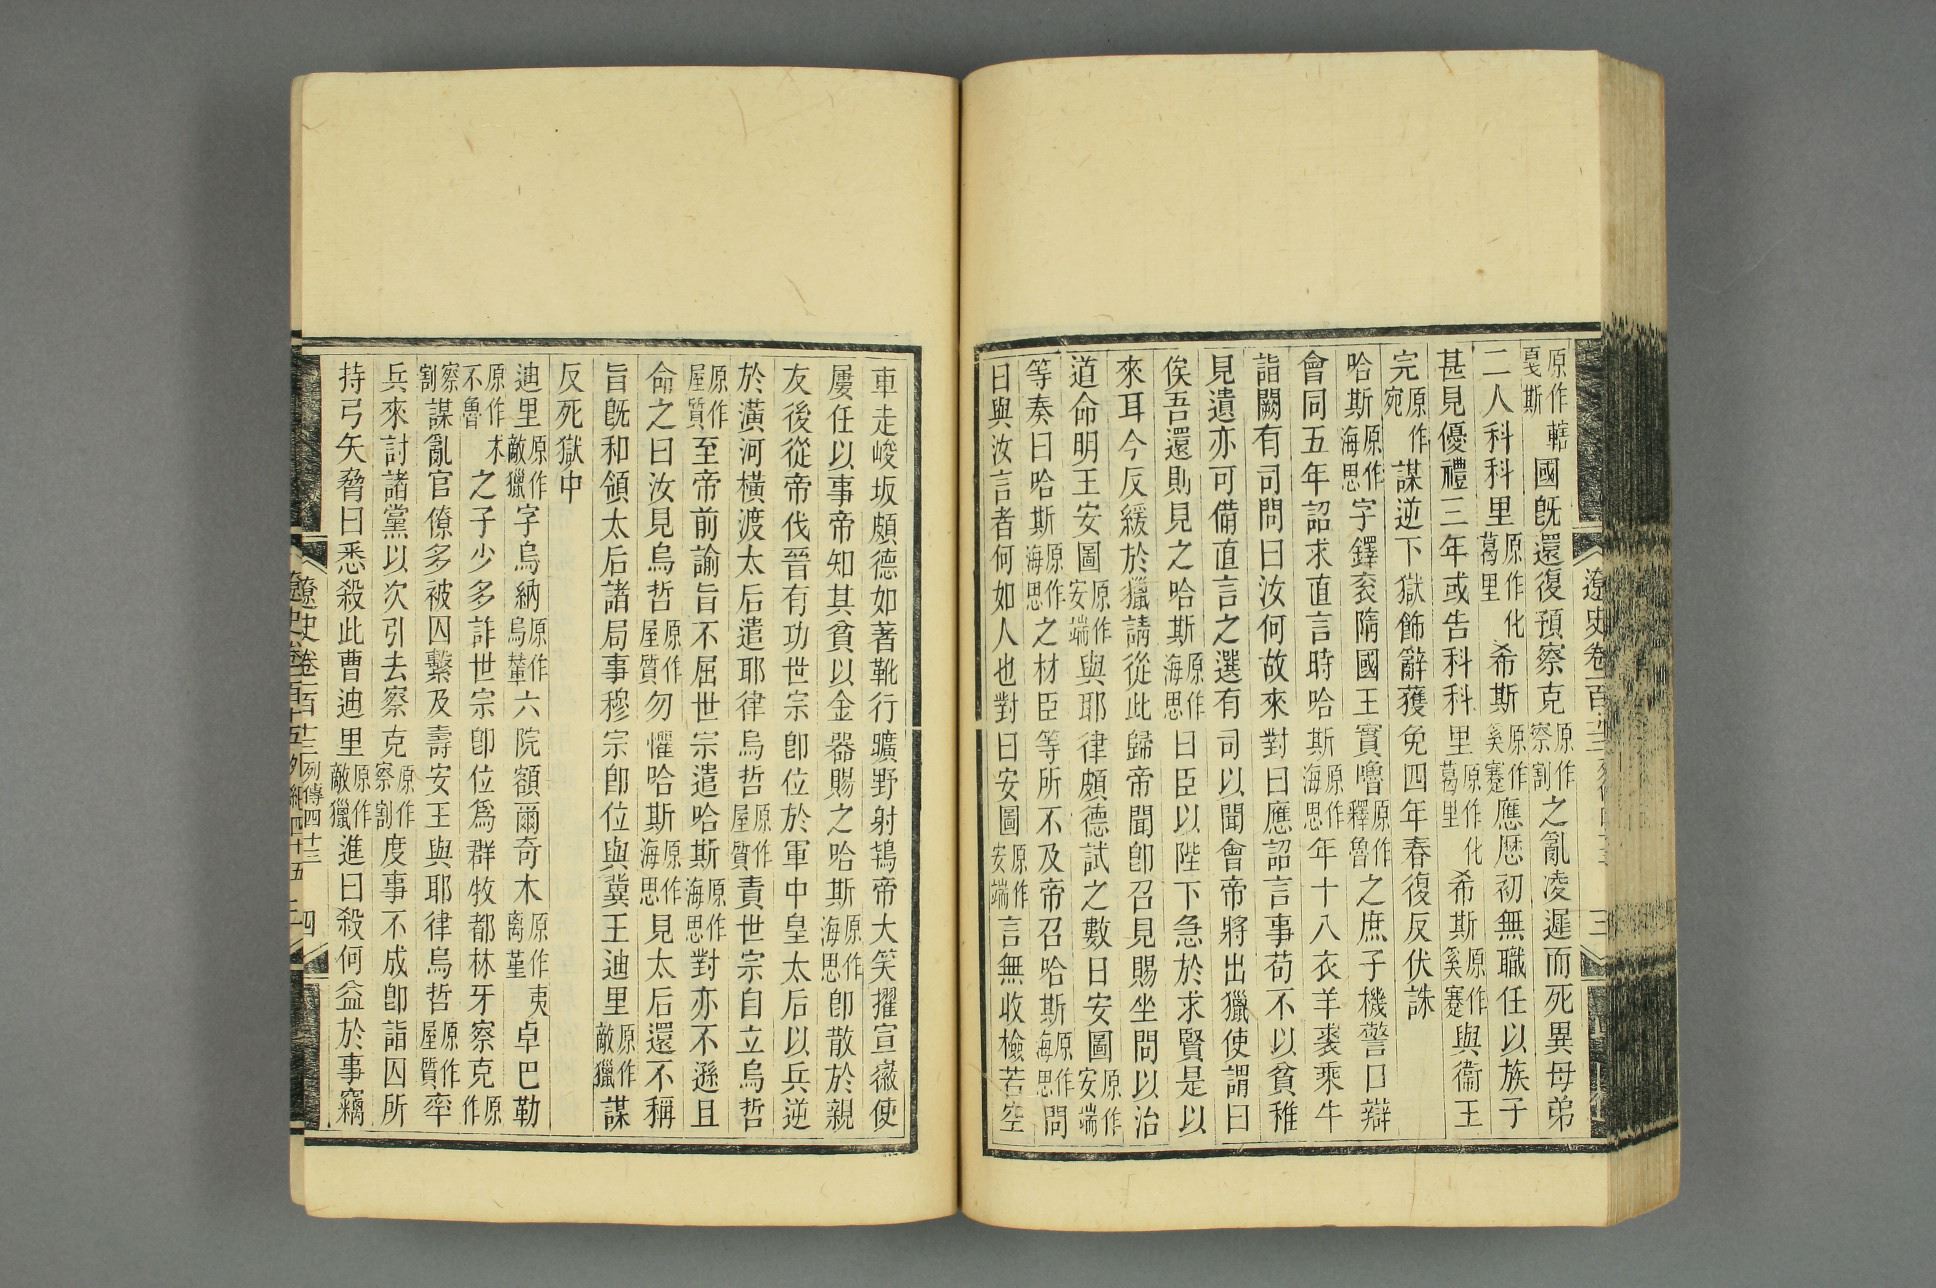 原作轄戛斯國旣還復預察克原作察割之亂凌遲而死異母弟
二人科科里原作化葛里希斯原作奚蹇應厯初無職任以族子
甚見優禮三年或告科科里原作化葛里希斯原作奚蹇與衞王
完原作宛謀逆下獄飾辭獲免四年春復反伏誅
哈斯原作海思字鐸衮隋國王實嚕原作釋魯之庶子機警口辯
會同五年詔求直言時哈斯原作海思年十八衣羊裘乘牛
詣闕有司問曰汝何故來對曰應詔言事苟不以貧稚
見遺亦可備直言之選有司以聞會帝將出獵使謂曰
俟吾還則見之哈斯原作海思曰臣以陛下急於求賢是以
來耳今反緩於獵請從此歸帝聞卽召見賜坐問以治
道命明王安圖原作安端與耶律頗德試之數日安圖原作安端
等奏曰哈斯原作海思之材臣等所不及帝召哈斯原作海思問
曰與汝言者何如人也對曰安圖原作安端言無收檢若空
車走峻坂頗德如著靴行曠野射鴇帝大笑擢宣徽使
屢任以事帝知其貧以金器賜之哈斯原作海思卽散於親
友後從帝伐晉有功世宗卽位於軍中皇太后以兵逆
於潢河橫渡太后遣耶律烏哲原作屋質責世宗自立烏哲
原作屋質至帝前諭旨不屈世宗遣哈斯原作海思對亦不遜且
命之曰汝見烏哲原作屋質勿懼哈斯原作海思見太后還不稱
旨旣和領太后諸局事穆宗卽位與冀王迪里原作敵獵謀
反死獄中
迪里原作敵獵字烏納原作烏輦六院額爾奇木原作夷离堇卓巴勒
原作朮不魯之子少多詐世宗卽位爲群牧都林牙察克原作
察割謀亂官僚多被囚繫及壽安王與耶律烏哲原作屋質率
兵來討諸黨以次引去察克原作察割度事不成卽詣囚所
持弓矢脅曰悉殺此曹迪里原作敵獵進曰殺何益於事竊
遼史卷百十三列傳四十三 四